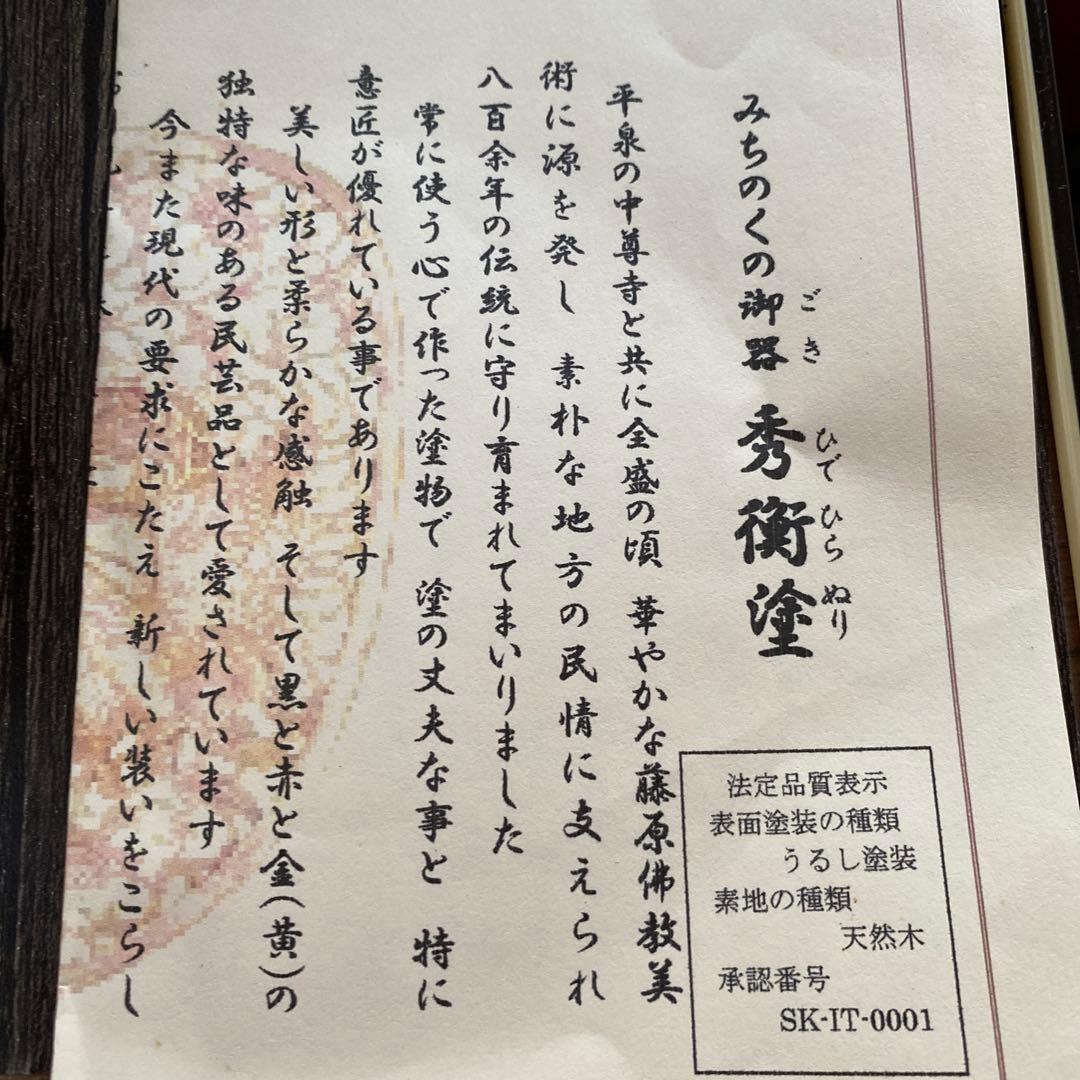 みちのくの御器 秀衡塗
ごき
ひでひらぬり
平泉の中尊寺と共に全盛の頃 華やかな藤原佛教美
術に源を発し 素朴な地方の民情に支えられ
八百余年の伝統に守り育まれてまいりました
常に使う心で作った塗物で 塗の丈夫な事と 特に
意匠が優れている事であります
美しい形と柔らかな感触 そして黒と赤と金(黄)の
独特な味のある民芸品として愛されています
今また現代の要求にこたえ 新しい装いをこらし
法定品質表示
表面塗装の種類
うるし塗装
素地の種類
天然木
承認番号
SK-IT-0001